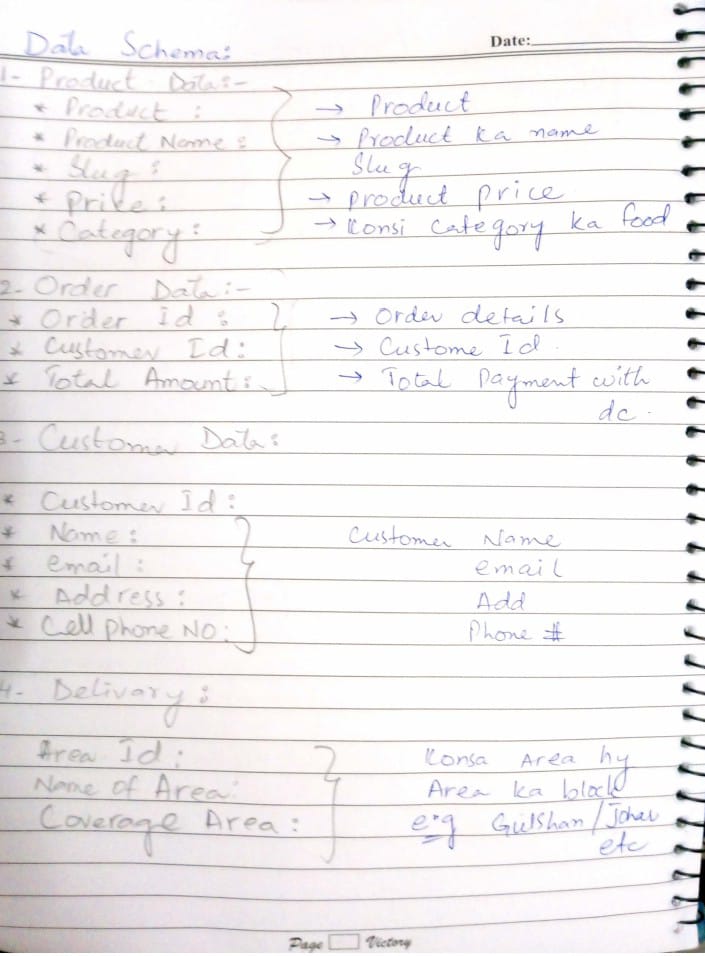 Data Schema:
Date:
1- Product Data:-
* Product : → Product
* Product Name : → Product ka name
* Slug : Slug
* Price : → product price
* Category : → Konsi category ka food
2- Order Data:-
* Order Id : → Order details
* Customer Id : → Custome Id.
* Total Amount : → Total Payment with
dc.
3- Customer Data:
* Customer Id :
* Name : Customer Name
* email : email
* Address : Add
* Cell phone NO : Phone #
4- Delivary :
Area Id : Konsa Area hy
Name of Area: Area ka block
Coverage Area : e.g Gulshan/Johar
etc
Page Victory